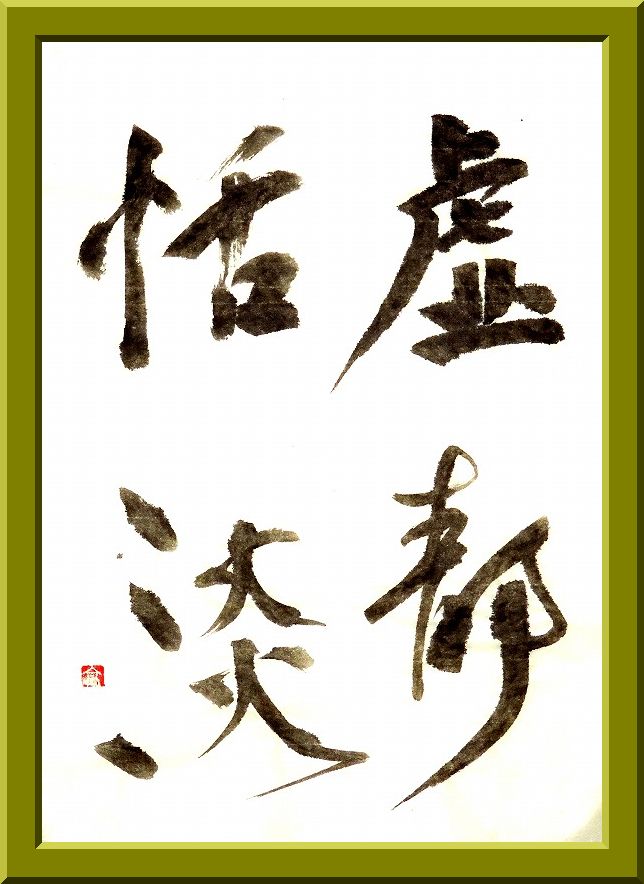 虚静
恬淡